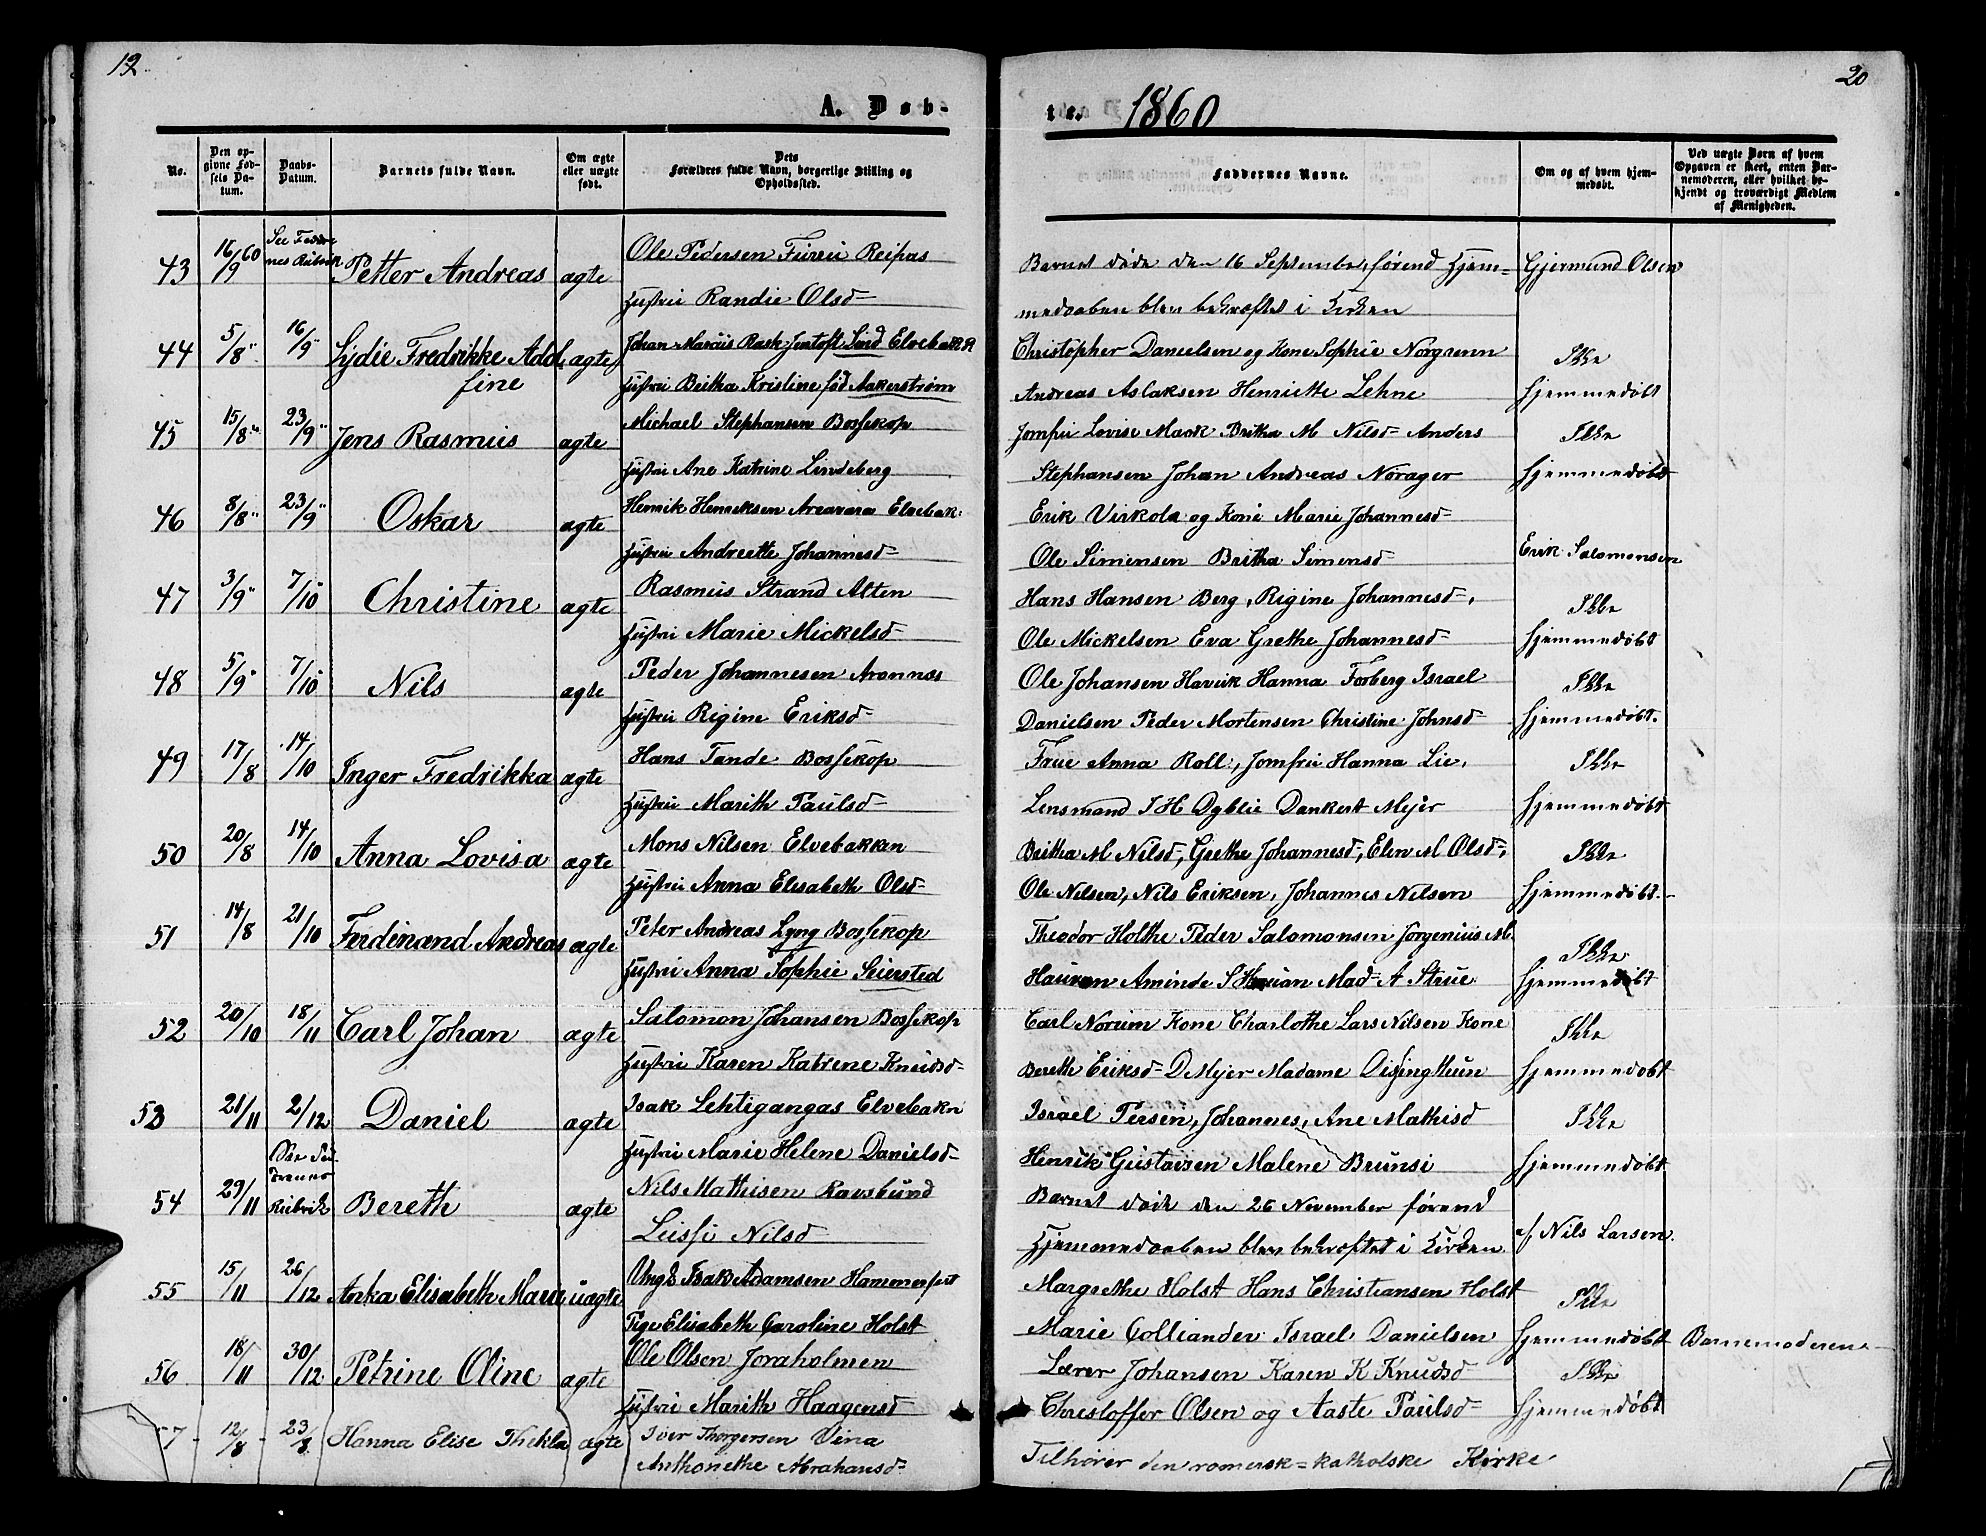 19.
20
A. Døb-
te. 1860
No.
Den opgivne Fødsels Datum.
Daabs-Datum.
Barnets fulde Navn.
Om ægte eller uægte født.
Dets Forældres fulde Navn, borgerlige Stilling og Opholdssted.
Faddernes Navne.
Om og af hvem hjemmedøbt.
Ved uægte Børn af hvem Opgaven er skeet, enten Barnemoderen, eller hvilket bekjendt og troværdigt Medlem af Menigheden.
43 16/9 60 See Faddernes Rubrik Petter Andreas ægte Ole Pedersen Furui Reipas Barnet døde den 16 September, førend Hjem= Gjermund Olsen
Hustru Randie Olsd= medaaben blev bekræftet i Kirken
44 5/8" 16/9" Lydie Fredrikke Adol ægte Johan Marcus Rask Jentoft Lund Elvebakk Christopher Danielsen og Kone Sophie Norgrenn Ikke
fine Hustru Britha Kristine fød Aakerstrøm Andreas Aslaksen Henriette Lehne hjemmedøbt
45 15/8" 23/9" Jens Rasmus ægte Michael Stephansen Bossekop Jomfru Lovise Maak Britha M Nilsd= Anders Ikke
Hustru Ane Katrine Lindeberg Stephansen Johan Andreas Norager hjemmedøbt
46 8/8" 23/9" Oskar ægte Henrik Henriksen Areavara Elvebak: Erik Virkola og Kone Marie Johannesd=
Hustru Andreette Johannesd= Ole Simensen Britha Simensd= Erik Salomonsen
47 3/9" 7/10" Christine ægte Rasmus Strand Alten Hans Hansen Berg, Rigine Johannesd=, Ikke
Hustru Marie Mickelsd= Ole Mickelsen Eva Grethe Johannesd= hjemmedøbt
48 5/9" 7/10" Nils ægte Peder Johannesen Aronnæs Ole Johansen Harvik Hanna Forberg Israel Ikke
Hustru Rigine Eriksd= Danielsen Peder Mortensen Christine Johnsd= hjemmedøbt.
49 17/8 14/10 Inger Fredrikka ægte Hans Tande Bossekop Frue Anna Roll, Jomfru Hanna Lie, Ikke
Hustru Marith Paulsd= Lensmand J H Dyblie Dankert Mejer hjemmedøbt
50 20/8 14/10 Anna Lovisa ægte Mons Nilsen Elvebakken Britha M Nilsd=, Grethe Johannesd=, Elen M Olsd=, Ikke
Hustru Anna Elisabeth Olsd= Ole Nilsen, Nils Eriksen, Johannes Nilsen hjemmedøbt.
51 14/8 21/10 Ferdinand Andreas ægte Peter Andreas Lyng Bossekop Theodor Holthe Peder Salomonsen Jørgenius M. Ikke
Hustru Anna Sophie Seiersted Hauran Aminde S Mad= A Strue hjemmedøbt
52 20/10 18/11 Carl Johan ægte Salomon Johansen Bossekop Carl Norum Kone Charlothe Lars Nilsen Kone Ikke
Hustru Karen Katrine Knudsd= Berethe Eriksd= D Mejer Madame hjemmedøbt
53 21/11 2/12 Daniel ægte Isak Lehtigangas Elvebakn Israel Persen, Johannes, Ane Mathisd Ikke
Hustru Marie Helene Danielsd= Henrik Gustavsen Malene Brunsi hjemmedøbt
54 23/11 See Faddernes Rubrik Bereth ægte Nils Mathisen Ravsbund Barnet døde den 26 November førend
Lussi Nilsd Hjemmedaaben blev bekræftet i Kirken af Nils Larsen.
55 15/11 26/12 Anka Elisabeth Marie uægte Ungk Isak Adamsen Hammerfest Margrethe Holst Hans Christiansen Holst Ikke
Pige Elisabeth Caroline Holst Marie Colliander Israel Danielsen hjemmedøbt Barnemoderen
56 18/11 30/12 Petrine Oline ægte Ole Olsen Joraholmen Lærer Johansen Karen K Knudsd= Ikke
Hustru Marith Haagensd= Christoffer Olsen og Aaste Paulsd= hjemmedøbt
57 12/8 23/8 Hanna Elise Thekla ægte Iver Thorgersen Vina Tilhører den romersk=katholske Kirke
Anthonethe Abrahamsd=